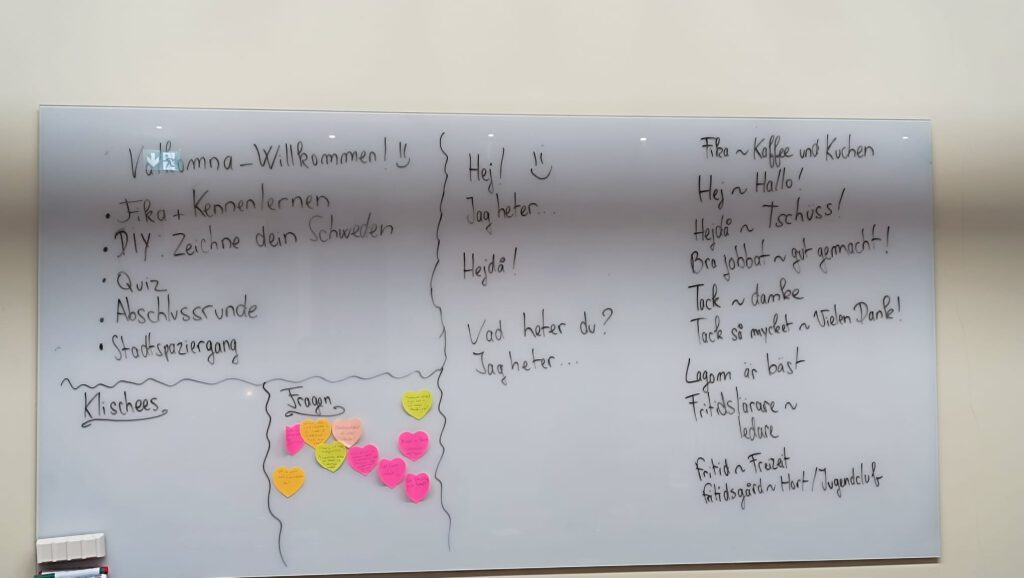 Välkomna - Willkommen!
• Fika + Kennenlernen
• DIY: Zeichne dein Schweden
• Quiz
• Abschlussrunde
• Stadtspaziergang
Klischees
Fragen
Hej!
Jag heter...
Hejdå!
Vad heter du?
Jag heter...
Fika ~ Kaffee und Kuchen
Hej ~ Hallo!
Hejdå ~ Tschüss!
Bra jobbat ~ gut gemacht!
Tack ~ danke
Tack så mycket ~ Vielen Dank!
Lagom är bäst
Fritidslärare ~
ledare
Fritid ~ Freizeit
Fritidsgård ~ Hort / Jugendclub